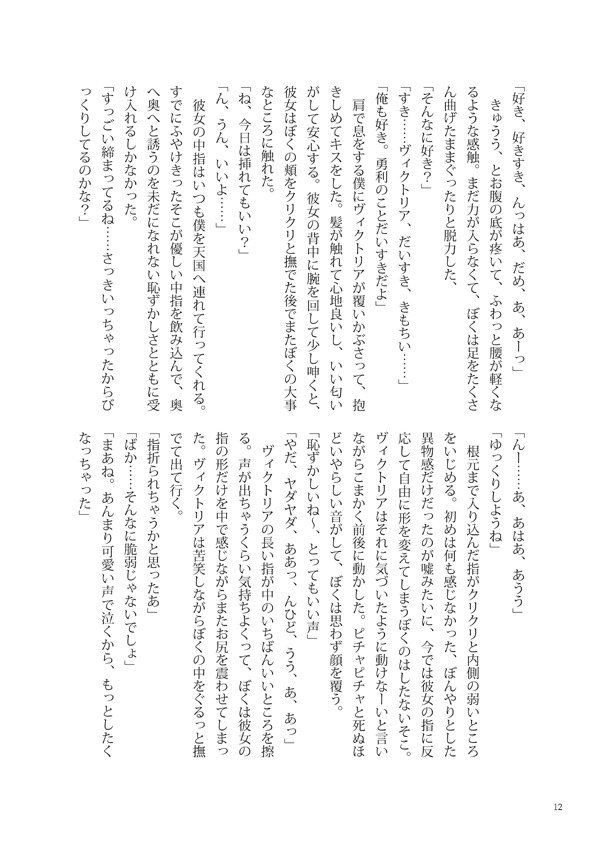 「好き、好きすき、んっはあ、だめ、あ、あーっ」
きゅうう、とお腹の底が疼いて、ふわっと腰が軽くな
るような感触。まだ力が入らなくて、ぼくは足をたくさ
ん曲げたままぐったりと脱力した、
「そんなに好き？」
「すき……ヴィクトリア、だいすき、きもちい……」
「俺も好き。勇利のことだいすきだよ」
肩で息をする僕にヴィクトリアが覆いかぶさって、抱
きしめてキスをした。髪が触れて心地良いし、いい匂い
がして安心する。彼女の背中に腕を回して少し呻くと、
彼女はぼくの頬をクリクリと撫でた後でまたぼくの大事
なところに触れた。
「ね、今日は挿れてもいい？」
「ん、うん、いいよ……」
彼女の中指はいつも僕を天国へ連れて行ってくれる。
すでにふやけきったそこが優しい中指を飲み込んで、奥
へ奥へと誘うのを未だになれない恥ずかしさとともに受
け入れるしかなかった。
「すっごい締まってるね……さっきいっちゃったからび
っくりしてるのかな？」
「んー……あ、あはあ、あうう」
「ゆっくりしようね」
根元まで入り込んだ指がクリクリと内側の弱いところ
をいじめる。初めは何も感じなかった、ぼんやりとした
異物感だけだったのが嘘みたいに、今では彼女の指に反
応して自由に形を変えてしまうぼくのはしたないそこ。
ヴィクトリアはそれに気づいたように動けなーいと言い
ながらこまかく前後に動かした。ピチャピチャと死ぬほ
どいやらしい音がして、ぼくは思わず顔を覆う。
「恥ずかしいね〜、とってもいい声」
「やだ、ヤダヤダ、ああっ、んひど、うう、あ、あっ」
ヴィクトリアの長い指が中のいちばんいいところを擦
る。声が出ちゃうくらい気持ちよくって、ぼくは彼女の
指の形だけを中で感じながらまたお尻を震わせてしまっ
た。ヴィクトリアは苦笑しながらぼくの中をぐるっと撫
でて出て行く。
「指折られちゃうかと思ったあ」
「ばか……そんなに脆弱じゃないでしょ」
「まあね。あんまり可愛い声で泣くから、もっとしたく
なっちゃった」
12